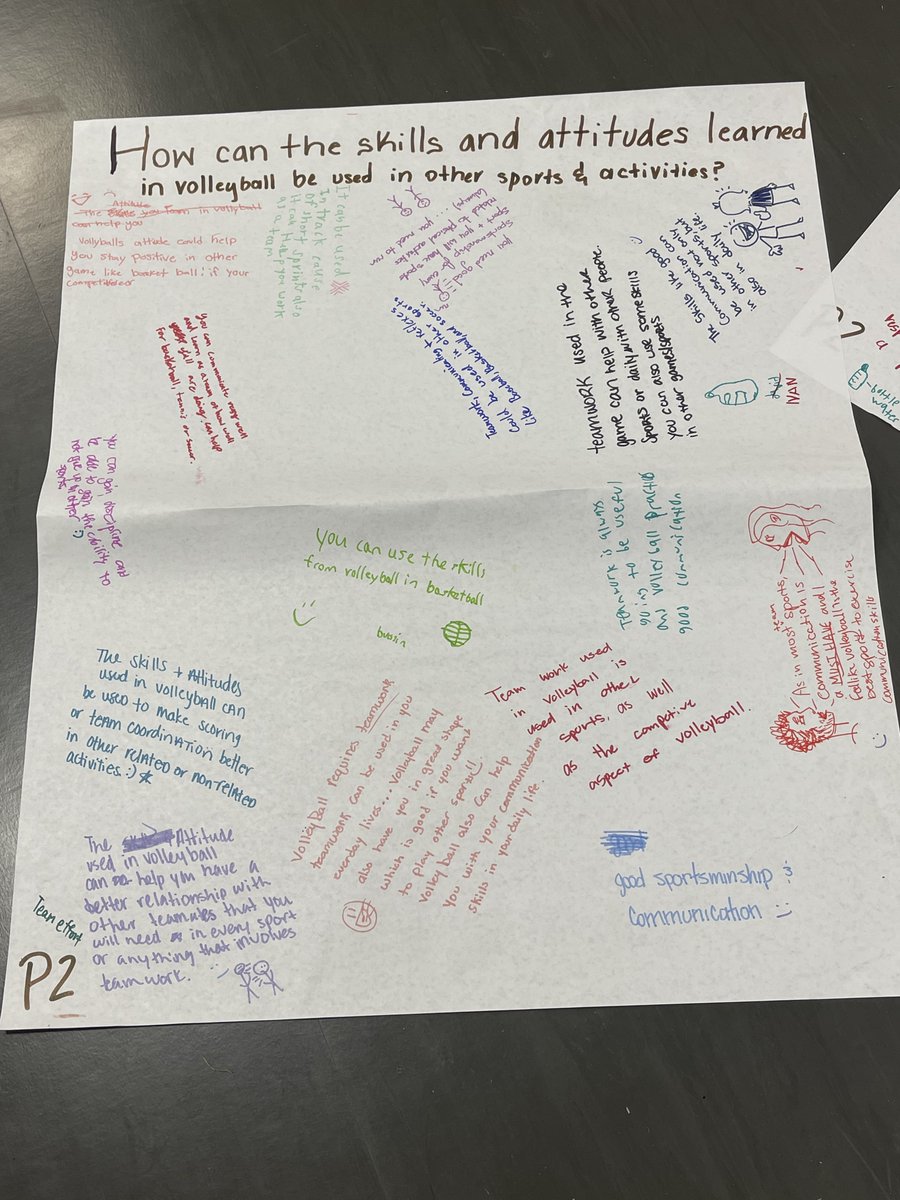 How can the skills and attitudes learned
in volleyball be used in other sports & activities?
Attitude
The skills you from in vollyball
can help you
Vollyballs attitude could help
you stay positive in other
game like basket ball! if your
It can be used
In track cause
of short sprints also
it can make you work
as a team!
you need good
sportsmanship for every
sport + you will
you need to run
The skills like good
Communication can
be used not only
in other sports but
also in daily life.
teamwork used in the
game can help with other people.
sports or daily with other people
you can also use some skills
in other games/sports
Teamwork, Communicating + reflexes
Could be used in other sports
like Baseball, Basketball, and soccer.
you can communicate
and learn to
for basketball, tennis or soccer.
IVAN
you can gain discipline and
to add to gain the ability to
not give up in other
sports
Teamwork is always
going to be useful
and volleyball practice
good communication
you can use the skills
from volleyball in basketball
bussin
team
As in most sports,
Communication is
a MUST HAVE and I
feel like volleyball is the
best sport to exercise
communication skills
The skills + Attitudes
used in volleyball can
be used to make scoring
or team coordination better
in other related or non-related
activities. :)
Team work used
in volleyball is
used in other
sports, as well
as the competive
aspect of volleyball.
VolleyBall requires teamwork
teamwork can be used in you
everday lives... Volleyball may
also have you in great shape
which is good if you want
to play other sports!!
Volley ball also can help
you with your communication
skills in your daily life.
The Attitude
used in volleyball
can help you have a
better relationship with
other teamates that you
will need in every sport
or anything that involves
teamwork.
good sportsminship :)
communication :)
Team effort
P2